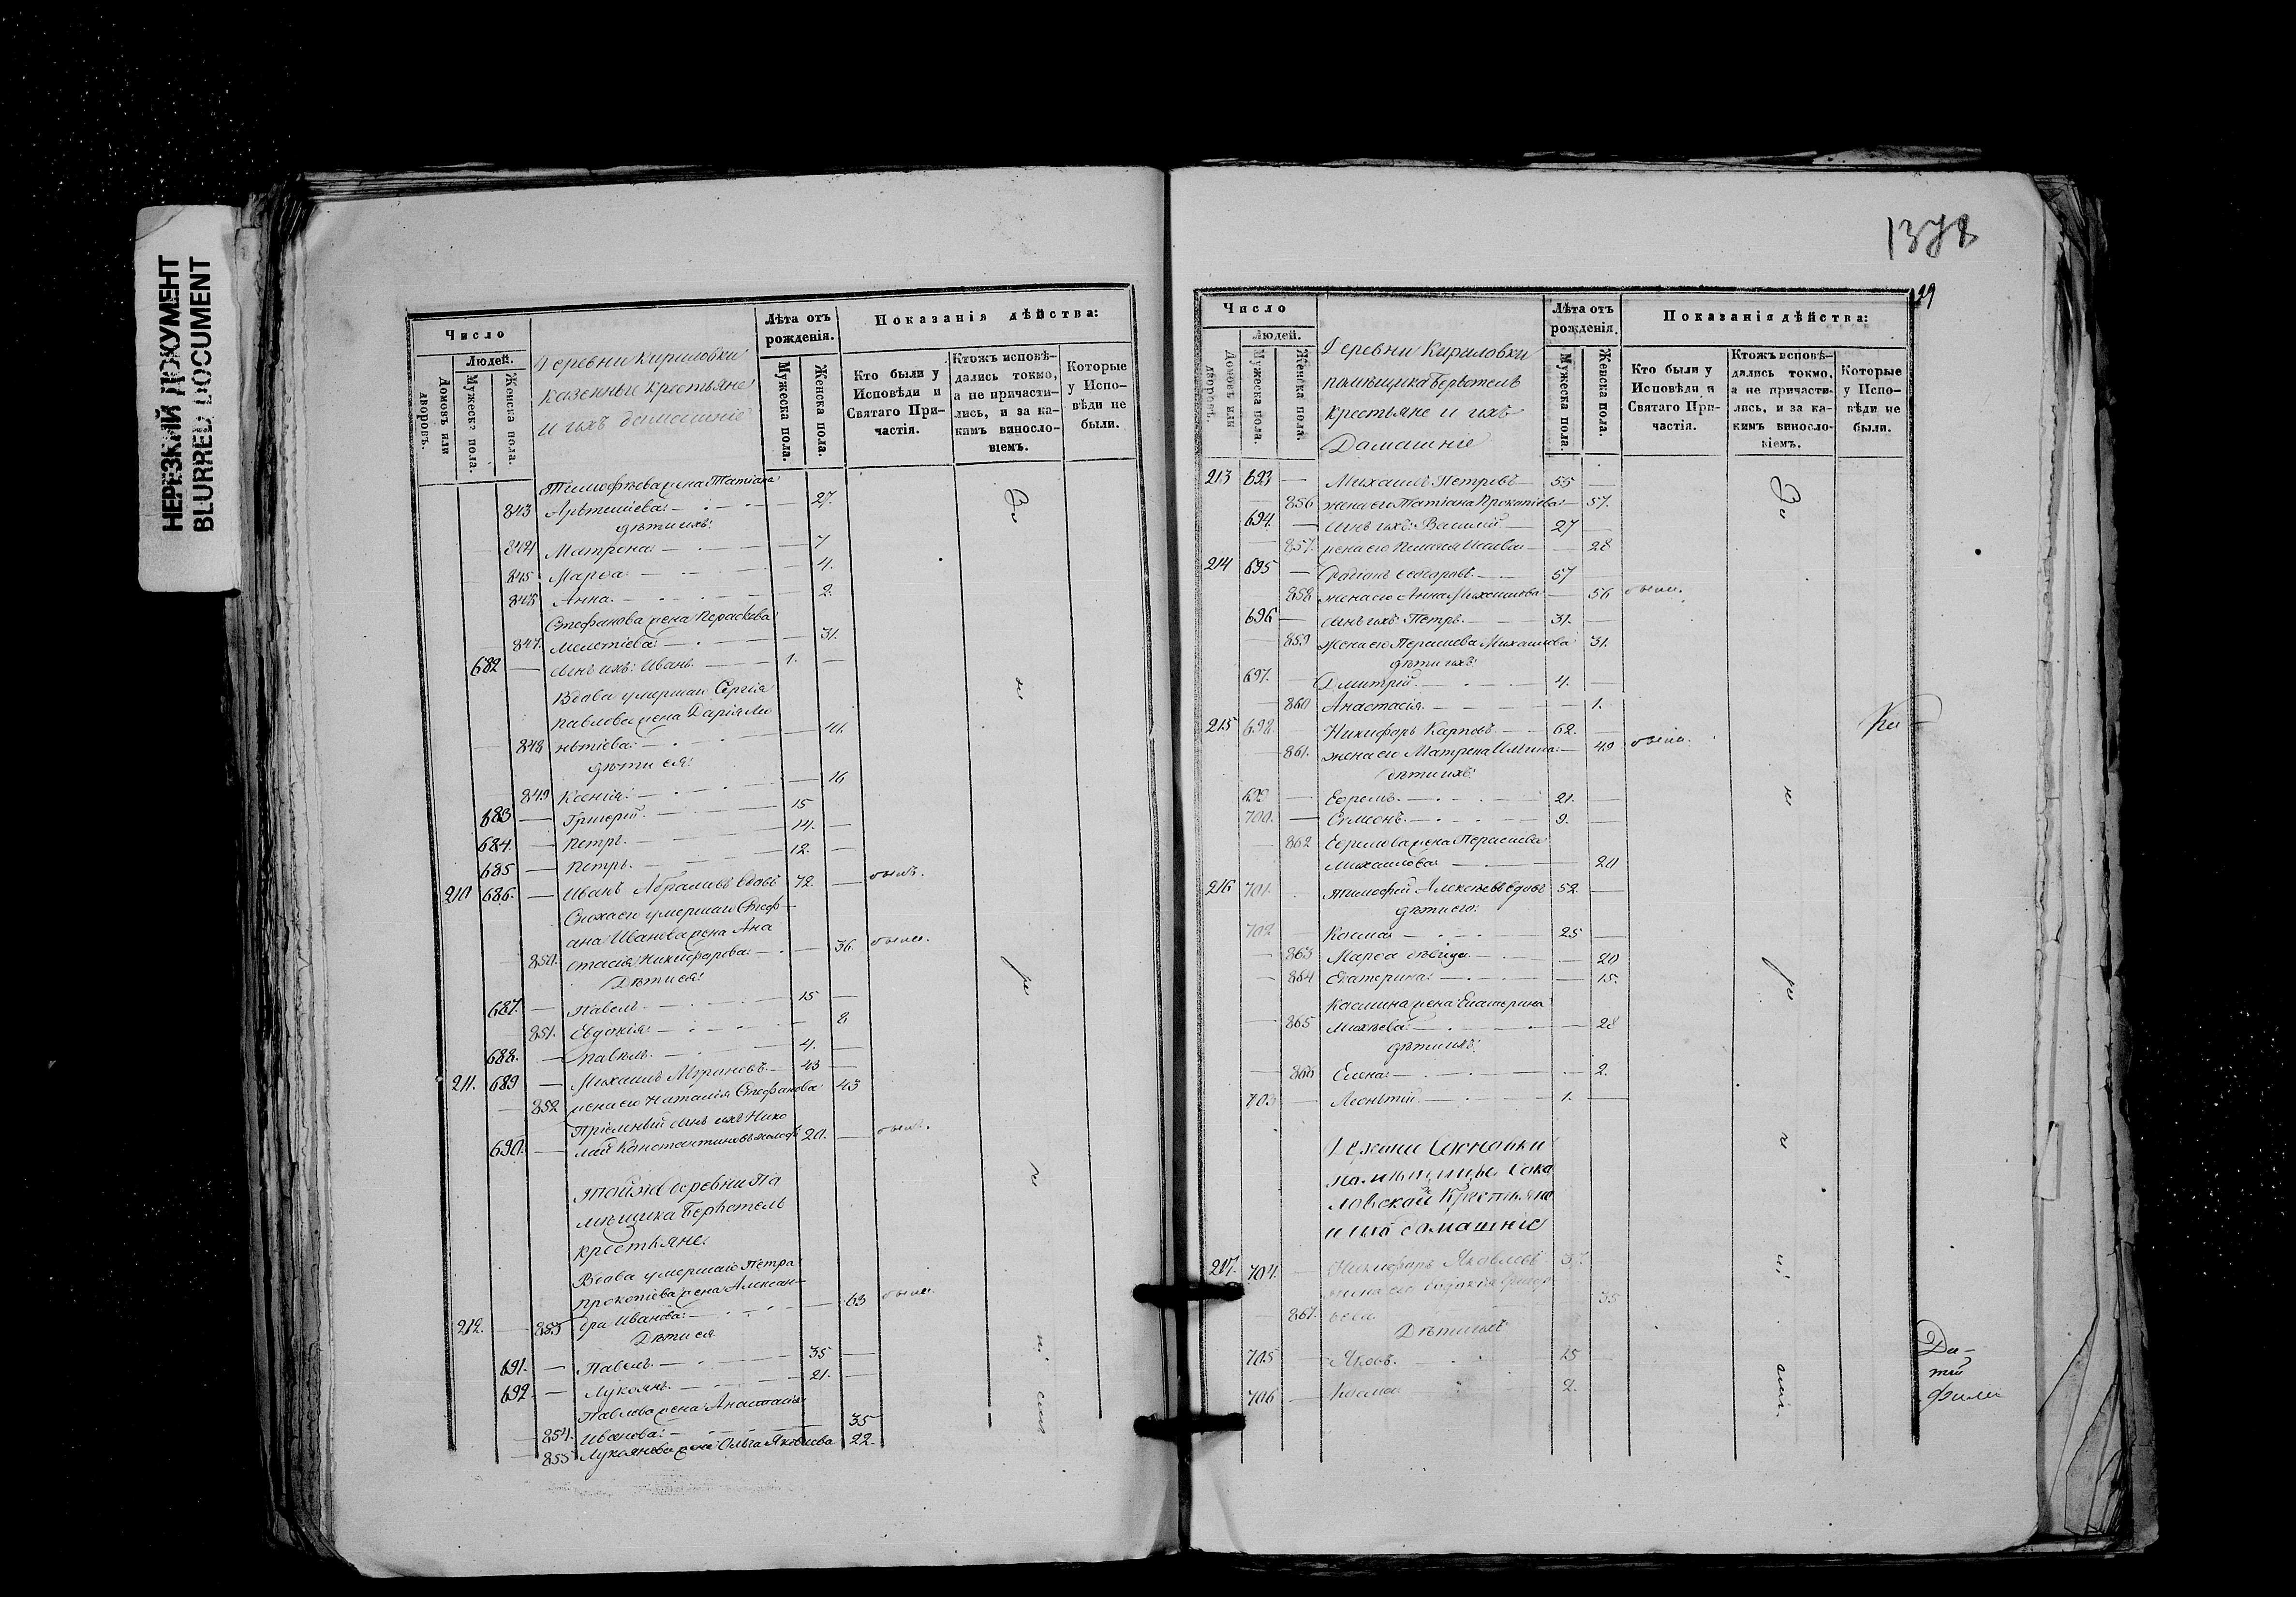 НЕРЕЗКИЙ ДОКУМЕНТ
BLURRED DOCUMENT
Число
Людей.
Домовъ или дворовъ.
Мужеска пола.
Женска пола.
Деревни Кириловки
казенные крестьяне
и ихъ домашніе
Лѣта отъ рожденія.
Мужеска пола.
Женска пола.
Показанія дѣйства:
Кто были у Исповѣди и Святаго Причастія.
Ктожъ исповѣдались токмо, а не причастились, и за какимъ винословіемъ.
Которые у Исповѣди не были.
Тимофѣева жена Татіана
843 Артеміева 27.
дѣти ихъ:
844 Матрена 7
845 Марѳа 4.
846 Анна 2.
Стефанова жена Параскева
847. Мелетіева 31.
682 — сынъ ихъ: Иванъ 1. —
Вдова умершаго Сергія
Павлова жена Дарія Ле
848 нтіева
дѣти ея:
849 Ксенія 16
683 — Григорій 15
684. — Петръ 14. —
685 — Петръ 12. —
210 686. — Иванъ Абрамовъ вдовъ 72. — былъ.
умершаго Стеф
ана Иванова жена Ана
850. стасія Никифорова 36. была.
Дѣти ея:
687. — Павелъ 15 —
851. Евдокія 8
688. — Павелъ 4. —
211. 689 — Михаилъ 43 —
852 жена его Наталія Стефанова 43
Пріемный сынъ ихъ Нико
690. — лай Константиновъ 20. — былъ.
Той же деревни По
мѣщика
крестьяне:
Вдова умершаго Петра
Прокопіева жена Алексан
212. — 853 дра Иванова 63 была.
Дѣти ея
691. — Павелъ 35 —
692. — Лукьянъ 21. —
Павлова жена Анастасія
854. Иванова 35
855 Лукьянова жена Ольга Яковлева 22.
1378
39
Число
Людей.
Домовъ или дворовъ.
Мужеска пола.
Женска пола.
Деревни Кириловки
помѣщика
крестьяне и ихъ
Домашніе
Лѣта отъ рожденія.
Мужеска пола.
Женска пола.
Показанія дѣйства:
Кто были у Исповѣди и Святаго Причастія.
Ктожъ исповѣдались токмо, а не причастились, и за какимъ винословіемъ.
Которые у Исповѣди не были.
213 693 — Михаилъ Петровъ 55 —
856 жена его Татіана Прокопіева 57.
694. — сынъ ихъ: Василій 27 —
857. жена его 28
214 695 — Ѳеодоровъ 57 —
858 жена его Анна Михаилова 56 была.
696 — сынъ ихъ Петръ 31. —
859 жена его Михаилова 31.
дѣти ихъ:
697. — Дмитрій 4. —
860 Анастасія 1.
215 698. — Никифоръ Карповъ 62. —
861. жена его Матрена Ильина 49 была.
дѣти ихъ:
699 — Ефремъ 21. —
700. — Симонъ 9. —
862 Ефремова жена
Михаилова 20
216 701. Тимофей Алексѣевъ вдовъ 52. —
дѣти его:
702 — Косма 25 —
863 Марѳа дѣвица 20
864 Екатерина 15.
Космина жена Екатерина
865 Михѣева 28
дѣти ихъ:
866 Елена 2.
703 — Леонтій 1. —
Деревни
помѣщицы Сока
ловской Крестьяне
и ихъ домашніе
217. 704. Никифоръ Яковлевъ 37.
жена его Евдокія
867. 35
Дѣти ихъ
705 Яковъ 15
706 — Косма 2.